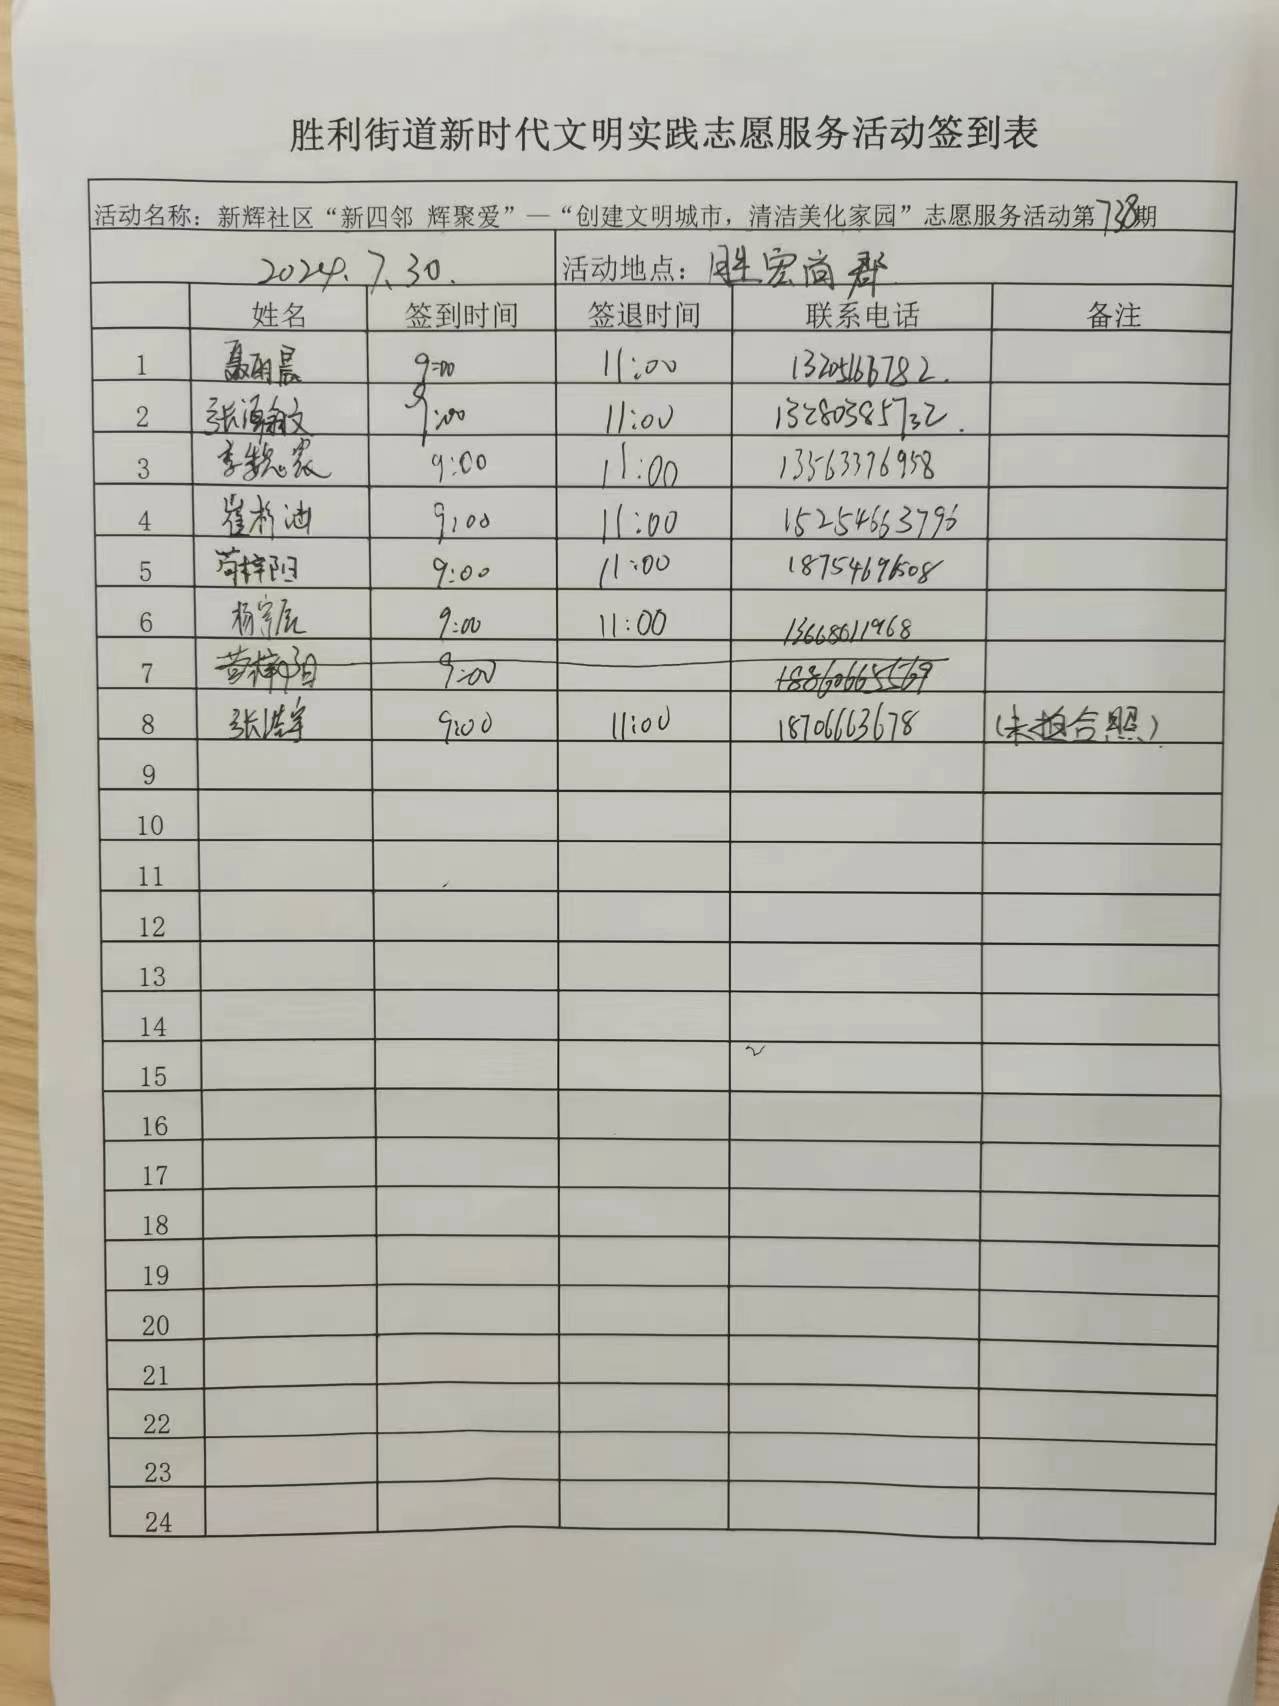 胜利街道新时代文明实践志愿服务活动签到表
活动名称：新辉社区“新四邻 辉聚爱”—“创建文明城市，清洁美化家园”志愿服务活动第738期
2024.7.30. 活动地点：胜宏尚都
姓名 签到时间 签退时间 联系电话 备注
1 聂雨晨 9:00 11:00 13205166782.
2 张瀚文 9:00 11:00 13280385732.
3 9:00 11:00 13563376958
4 9:00 11:00 15254663796
5 苟梓阳 9:00 11:00
6 杨宗辰 9:00 11:00 13668611968
7 9:00 18860665569
8 张浩宇 9:00 11:00 18706663678 (未拍合照)
9
10
11
12
13
14
15
16
17
18
19
20
21
22
23
24